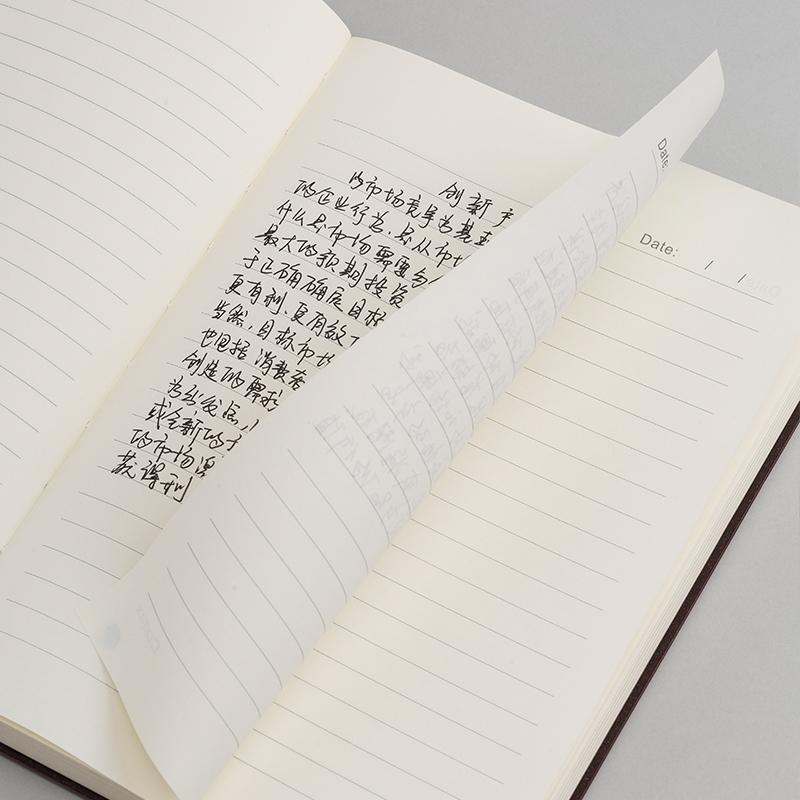 创新产
的市场竞争为基本
的企业行为,是从市场
什么是市场需要与
最大的预期投资
于正确确定目标
更有利、更有效
当然,目标市场
也包括消费者
创造的需求
为出发点,
或全新的
的市场
获得利
Date: / /
Date: